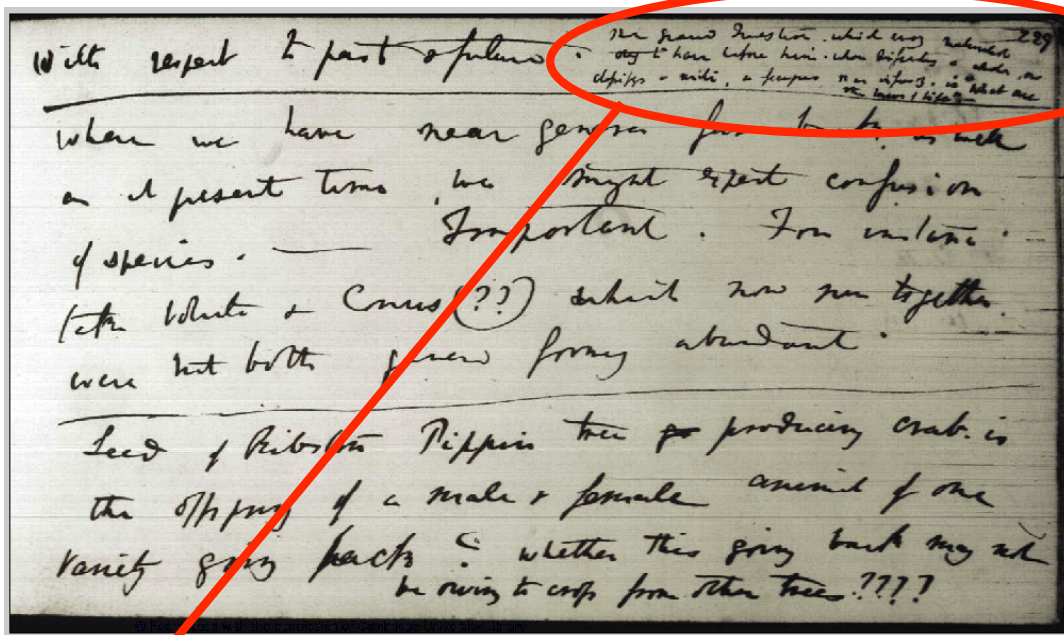 229
The Grand Question, which every naturalist
ought to have before him, when dissecting a whale, or
classifying a mite, a fungus, or an infusorian. is What are
the laws of life
With respect to past & future.
Where we have near genera far back, as well
as at present time we might expect confusion
of species. — Important. For instance
take Voluta & Conus (??) which now run together.
were not both genera formerly abundant.
Seed of Ribston Pippin tree producing crab. is
the offspring of a male & female animal of one
Variety going back? whether this going back may not
be owing to cross from other trees????